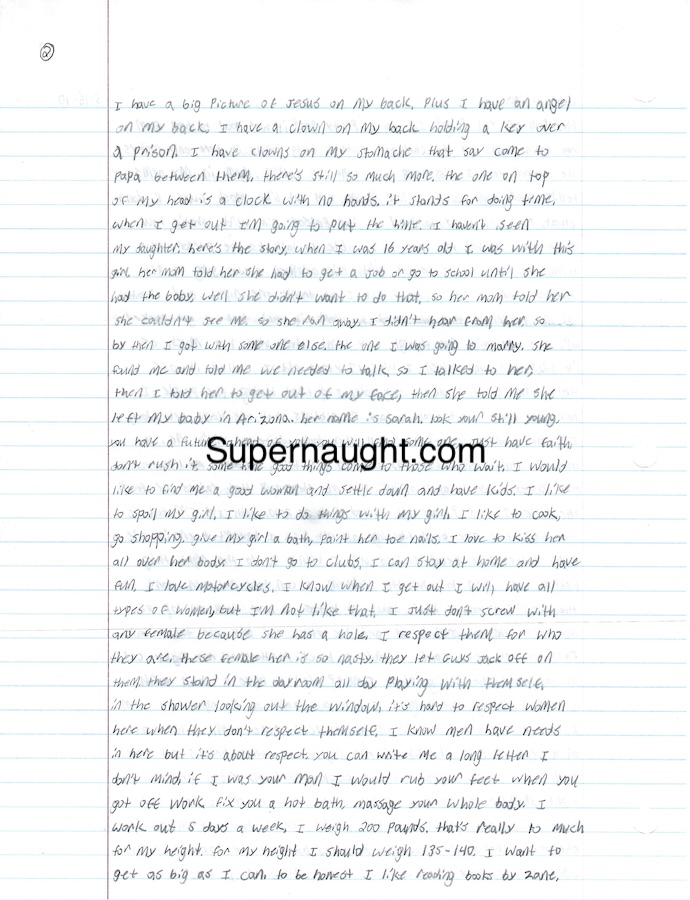 ②
I have a big Picture of Jesus on my back, Plus I have an angel
on my back, I have a clown on my back holding a key over
a prison. I have clowns on my stomache that say come to
papa between them, there's still so much more, the one on top
of my head is a clock with no hands, it stands for doing time,
when I get out I'm going to put the time. I haven't seen
my daughter, here's the story, when I was 16 years old I was with this
girl, her mom told her she had to get a job or go to school until she
had the baby, well she didn't want to do that, so her mom told her
she couldn't see me, so she ran away, I didn't hear from her so
by then I got with some one else, the one I was going to marry, she
found me and told me we needed to talk, so I talked to her,
then I told her to get out of my face, then she told me she
left my baby in Arizona. her name is sarah. look your still young,
you have a future ahead of you, you will some one, just have faith,
Supernaught.com
don't rush it some good things come to those who wait, I would
like to find me a good woman and settle down and have kids. I like
to spoil my girl, I like to do things with my girl, I like to cook,
go shopping, give my girl a bath, paint her toe nails, I love to kiss her
all over her body, I don't go to clubs, I can stay at home and have
fun, I love motorcycles, I know when I get out I will have all
types of women, but I'm not like that, I just don't screw with
any female because she has a hole, I respect them for who
they are, these female her is so nasty, they let guys jack off on
them, they stand in the dayroom all day playing with themself,
in the shower looking out the window, it's hard to respect women
here when they don't respect themself, I know men have needs
in here but it's about respect, you can write me a long letter I
don't mind, if I was your man I would rub your feet when you
got off work, fix you a hot bath, massage your whole body. I
work out 5 days a week, I weigh 200 pounds, that's really to much
for my height, for my height I should weigh 135-140, I want to
get as big as I can, to be honest I like reading books by zane,